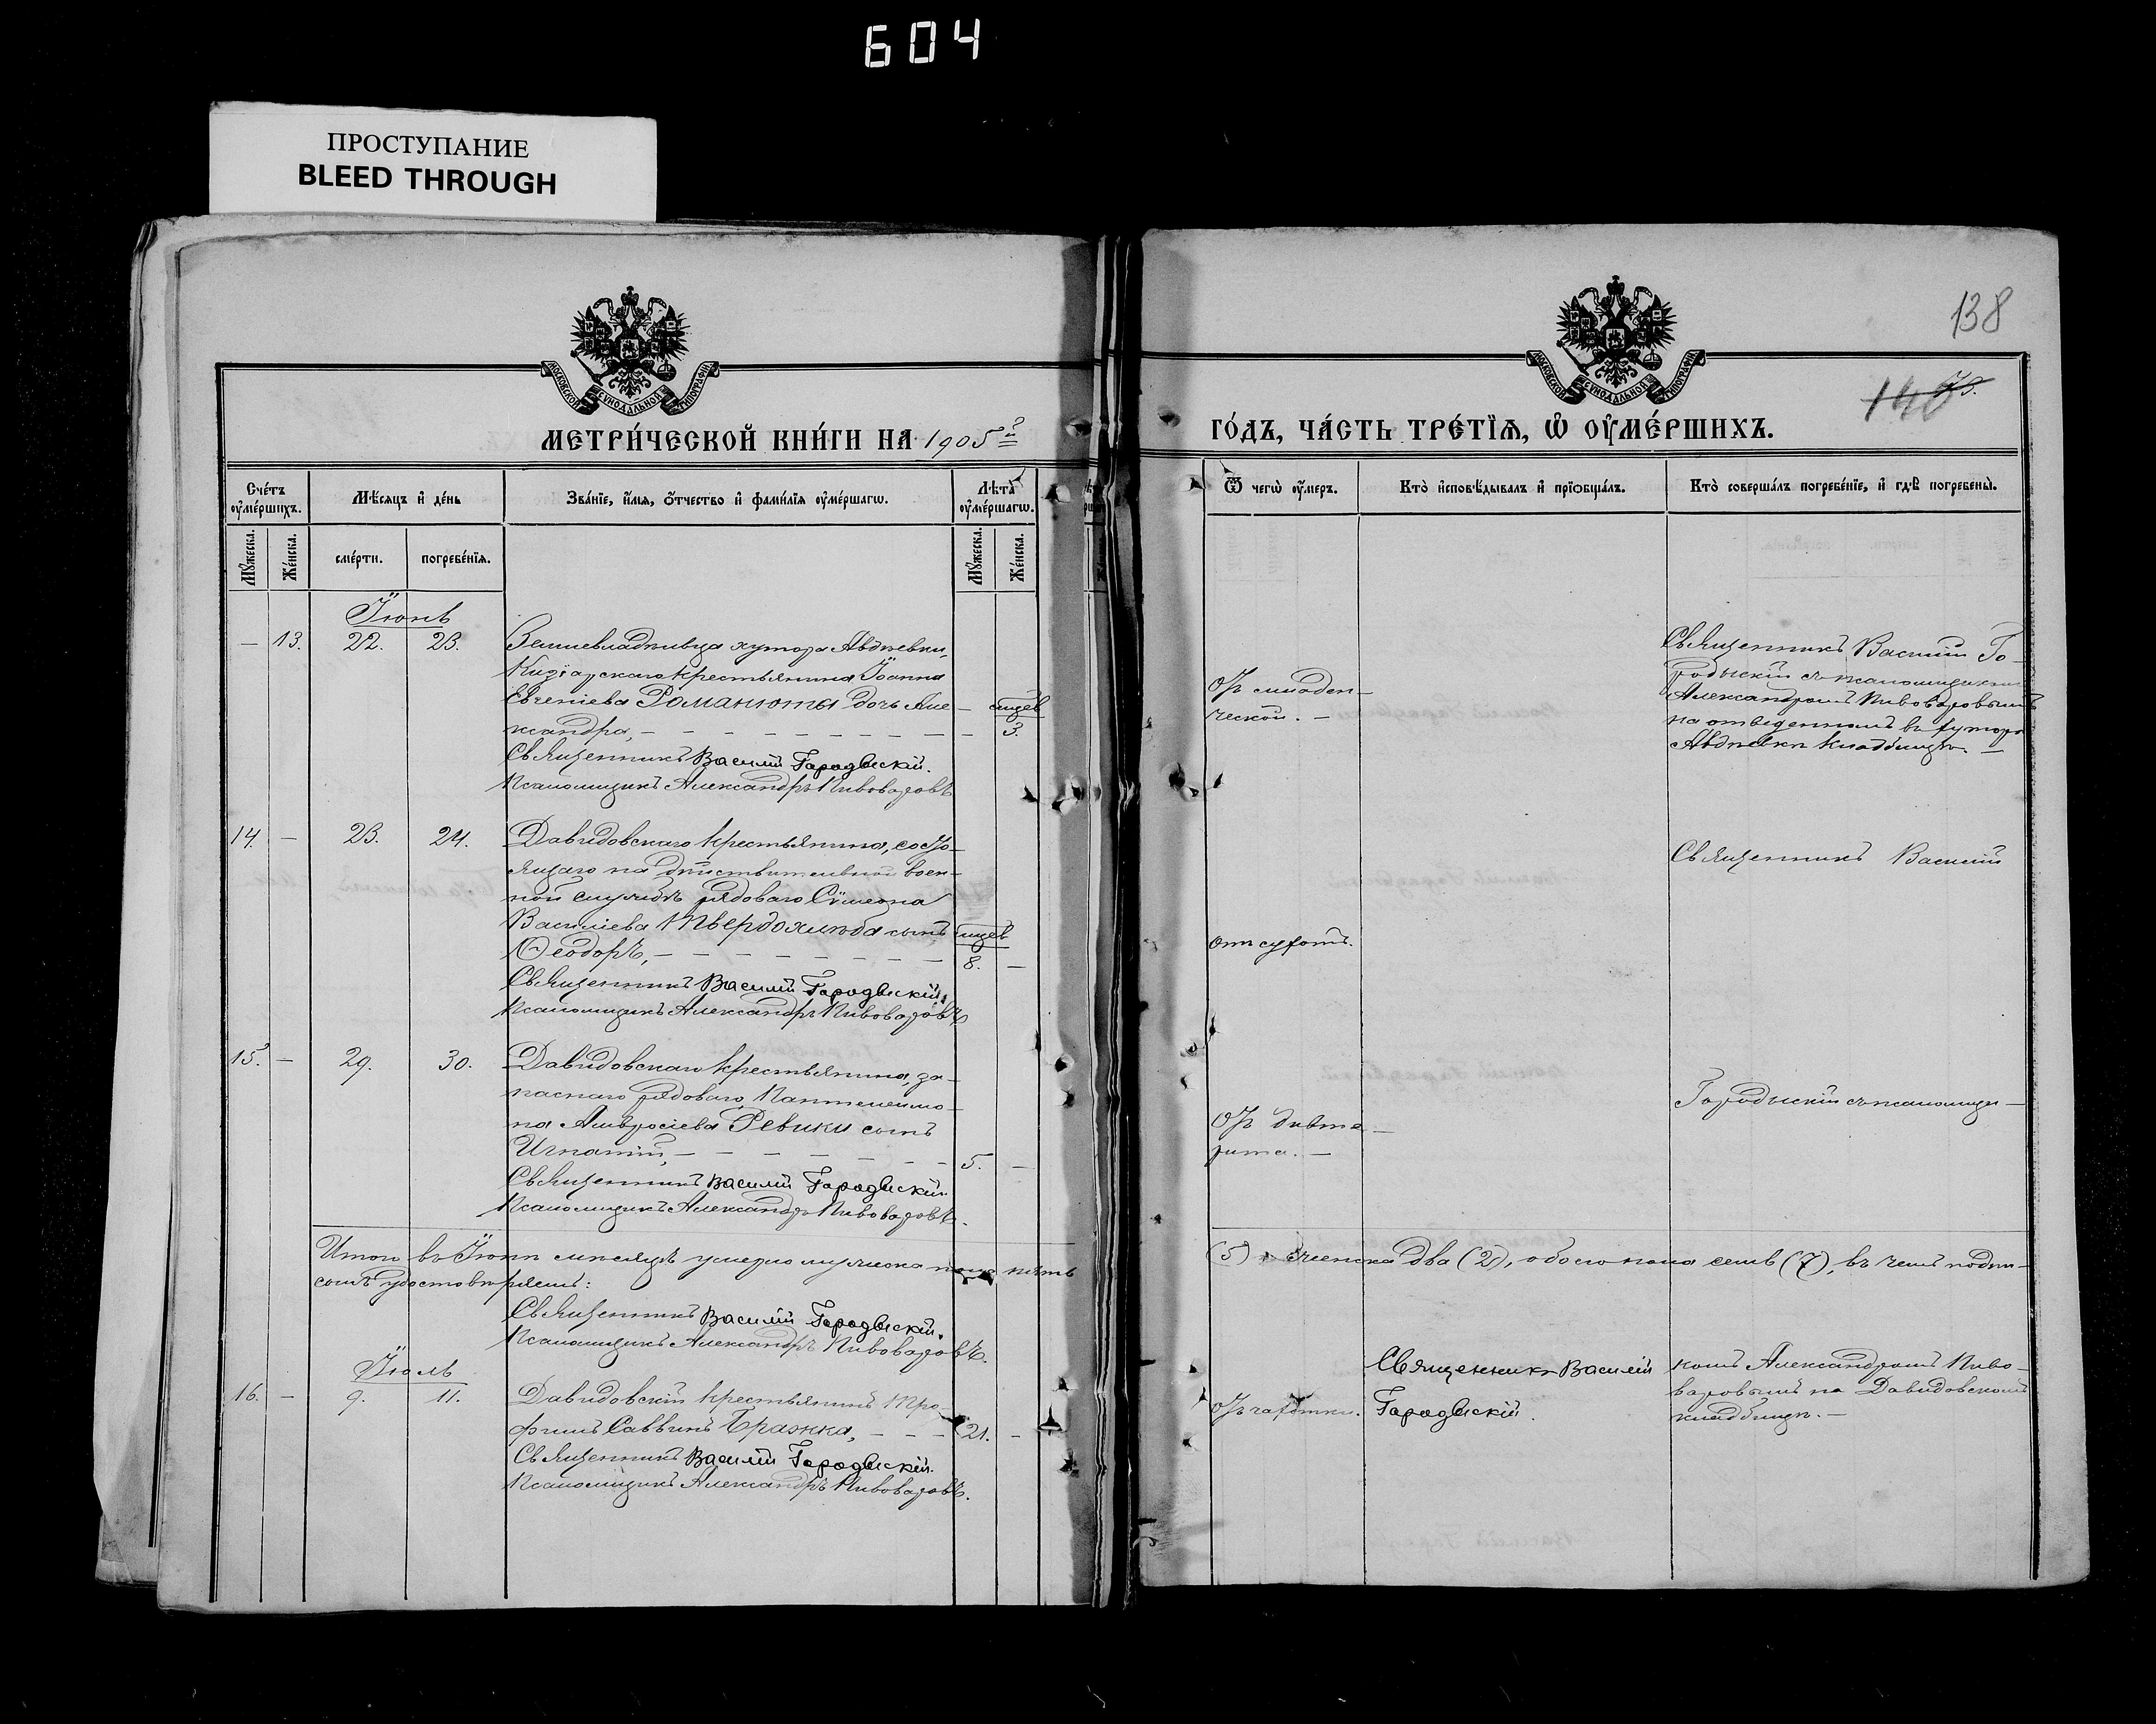 604
ПРОСТУПАНИЕ
BLEED THROUGH
138
МОСКОВСКОЙ СѴНОДАЛЬНОЙ ТИПОГРАФІИ
МОСКОВСКОЙ СѴНОДАЛЬНОЙ ТИПОГРАФІИ
140
МЕТРИ́ЧЕСКОЙ КНИ́ГИ НА 1905й
ГО́ДЪ, ЧА́СТЬ ТРЕ́ТІѦ, Ѡ ОУМЕ́РШИХЪ.
Сче́тъ оумершихъ.
Мѣсѧцъ и де́нь
Зва́ніе, и́мѧ, о́тчество и фами́лїѧ оуме́ршагѡ.
Лѣта̀ оуме́ршагѡ.
Ѿ чегѡ̀ оумеръ.
Кто̀ исповѣ́дывалъ и прїѡбща́лъ.
Кто̀ соверша́лъ погребе́нїе, и гдѣ̀ погребены̀.
Мужеска. Же́нска. сме́рти. погребе́нїѧ. Мужеска. Же́нска.
Іюнь
— 13. 22. 23. Землевладѣльца хутора Авдѣевки,
крестьянина Іоанна
Евгеніева Романюты дочь Але-
ксандра, — мцев 3.
Священникъ Василій Городыскій.
Псаломщикъ Александръ Пивоваровъ
Отъ младен-
ческой. —
Священникъ Василій Го-
родыскій съ псаломщикомъ
Александромъ Пивоваровымъ
на отведенномъ въ хуторѣ
Авдѣевкѣ кладбищѣ. —
14. — 23. 24. Давидовскаго крестьянина, состо-
ящаго на дѣйствительной воен-
ной службѣ рядоваго Сѵмеона
Василіева Твердохлѣба сынъ
Ѳеодоръ, — мцев 8. —
Священникъ Василій Городыскій.
Псаломщикъ Александръ Пивоваровъ
Отъ сухотъ.
Священникъ Василій
15. — 29. 30. Давидовскаго крестьянина, за-
паснаго рядоваго Пантелеимо-
на Амвросіева Ревики сынъ
Игнатій, — 5. —
Священникъ Василій Городыскій.
Псаломщикъ Александръ Пивоваровъ.
Отъ дифте-
рита. —
Городыскій съ псаломщи-
Итого въ Іюнѣ мѣсяцѣ умерло мужеска пола пять
(5) и женска два (2), обоего пола семь (7), въ чемъ подпи-
сомъ удостовѣряемъ:
Священникъ Василій Городыскій.
Псаломщикъ Александръ Пивоваровъ.
Іюль
16. — 9. 11. Давидовскій крестьянинъ Тро-
фимъ Саввинъ Бражка, — 21. —
Священникъ Василій Городыскій.
Псаломщикъ Александръ Пивоваровъ.
Отъ чахотки.
Священникъ Василій
Городыскій.
комъ Александромъ Пиво-
варовымъ на Давидовскомъ
кладбищѣ. —